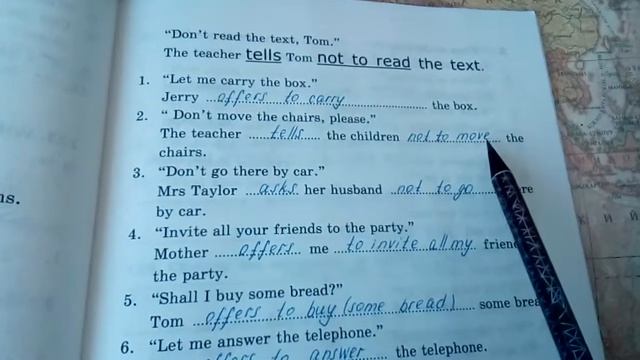 "Don't read the text, Tom."
The teacher tells Tom not to read the text.
1. "Let me carry the box."
Jerry ...offers to carry... the box.
2. " Don't move the chairs, please."
The teacher ...tells... the children not to move... the
chairs.
3. "Don't go there by car."
Mrs Taylor ...asks her husband ...not to go...
by car.
ns.
4. "Invite all your friends to the party."
Mother ...offers... me ...to invite all my
the party.
5. "Shall I buy some bread?"
Tom ...offers to buy (some bread)... some
6. "Let me answer the telephone."
to answer the telephone.